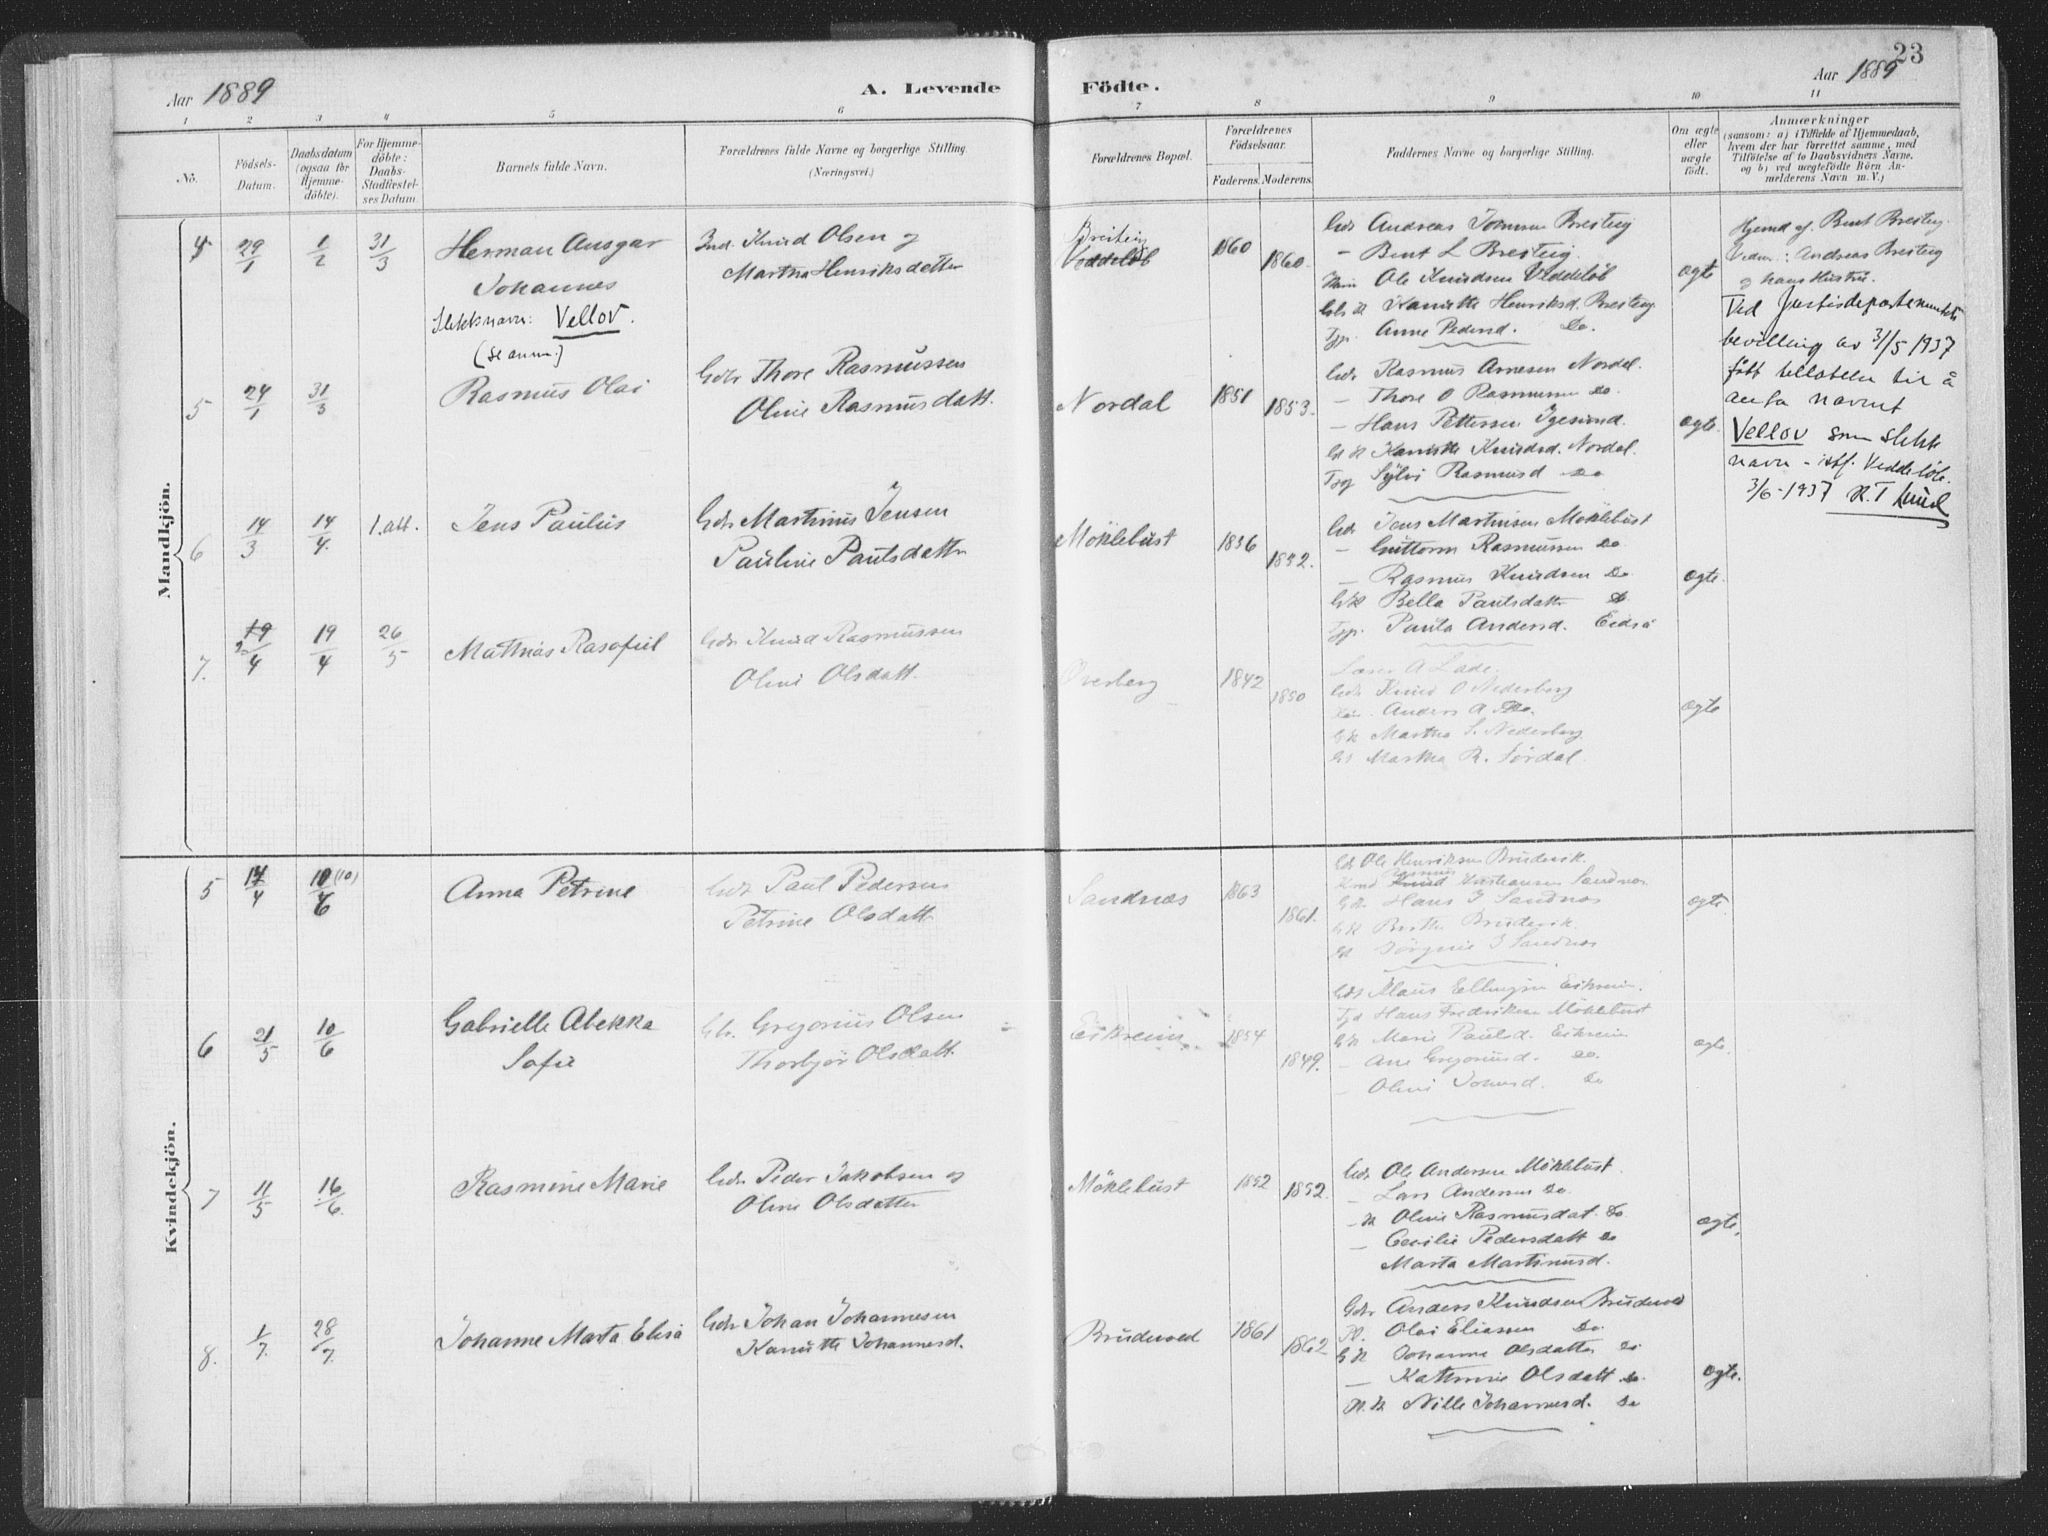 23
Aar 1889
A. Levende Födte.
Aar 1889
1 2 3 4 5 6 7 8 9 10 11
No.
Födsels-Datum.
Daabsdatum (ogsaa for Hjemme-döbte).
For Hjemme-döbte: Daabs-Stadfæstel-ses Datum.
Barnets fulde Navn.
Forældrenes fulde Navne og borgerlige Stilling.
(Næringsvei.)
Forældrenes Bopæl.
Forældrenes Födselsaar.
Faderens. Moderens.
Faddernes Navne og borgerlige Stilling.
Om ægte eller uægte födt.
Anmærkninger
(saasom: a) i Tilfælde af Hjemmedaab, hvem der har forrettet samme, med Tilföielse af to Daabsvidners Navne, og b) ved uægtefödte Börn An-melderens Navn m. V.)
Mandkjön.
4 29/1 1/2 31/3 Herman Ansgar Johannes
Slektsnavn: Vellov.
(se anm.)
Ind. Knud Olsen og
Martha Henriksdatter
Breiteig
Veddeløb
1860 1860.
Gdr Andreas Jonsen Bresteig
- Bent L Bresteig.
Ole Knudsen Veddeløb
Gdr K Hanikke Henriksd. Bresteig
Tjp. Anne Pedersd. Do.
ægte
Hjemd af Bent Bresteig
Vidner: Andreas Bresteig
og hans Hustru.
Ved Justisdepartementets
bevilling av 31/5 1937
fått tillatelse til å
anta navnet
Vellov som slekts
navn - istf. Veddeløb.
3/6-1937
5 24/1 31/3 Rasmus Olai
Gdr Thore Rasmussen
Oline Rasmusdatt.
Nordal
1851 1853.
Gdr Rasmus Arnesen Nordal.
- Thore O Rasmussen Do.
- Hans Pettersen Igesund.
Gd K Kanutte Knudsd. Nordal.
Tjg Sylvi Rasmusd Do
ægte.
6 14/3 14/4. 1. att. Jens Paulus
Gdr Martinus Jensen
Pauline Paulsdatter
Möklebust
1836 1842.
Gdr Jens Martinsen Möklebust
- Guttorm Rasmussen Do
- Rasmus Knudsen Do
GK Bella Paulsdatter Do
Tjp. Paula Andersd. Eidså
ægte.
7. 19/4 19/4 26/5 Mathias Rasafiel
Gdr Knud Rasmussen
Oline Olsdatt.
Overberg
1842 1850
A Lade.
Gdr Knud O Nederberg
Anders A Do.
GK Martha S. Nederberg
Gd Martha R. Lørdal.
ægte
Kvindekjön.
5 14/4 10/6 (10) Anna Petrine
Gdr Paul Pedersen
Petrine Olsdatt
Sandnæs
1863 1861.
Gdr Ole Henriksen Brudevik.
Rasmus
Knud Sandnæs
Gdr Hans J Sandnæs
GK Berthe Brudevik.
Gd Jörgine J Sandnæs
ægte.
6 21/5 10/6 Gabrielle Abekka
Sofie
Gdr. Gregorius Olsen
Thorbjør Olsdatt.
Eikreim
1854 1849.
Gdr Klaus Ellingsen Eikreim.
Tjd Hans Fredriksen Möklebust
GK Marie Paulsd. Eikreim
- Ane Gregoriusd. Do.
- Oline Jonasd. Do
ægte.
7 11/5 16/6. Rasmine Marie
Gdr Peder Jakobsen og
Oline Olsdatter
Möklebust
1852 1852.
Gdr Ole Andersen Möklebust.
- Lars Andersen Do.
- K Oline Rasmusdat. Do
- Cecilie Pedersdatt Do
Marta Martinusd.
ægte.
8. 1/7. 28/7. Johanne Marta Elisa
Gdr Johan Johannesen
Kanutte Johannesd.
Brudevold
1861 1862
Gdr Anders Knudsen Brudevold
Pl. Olai Eliassen Do.
GK Johanne Olsdatter Do
- Kathrine Olsdatt Do.
Pl. K Nille Johannesd. Do
ægte.